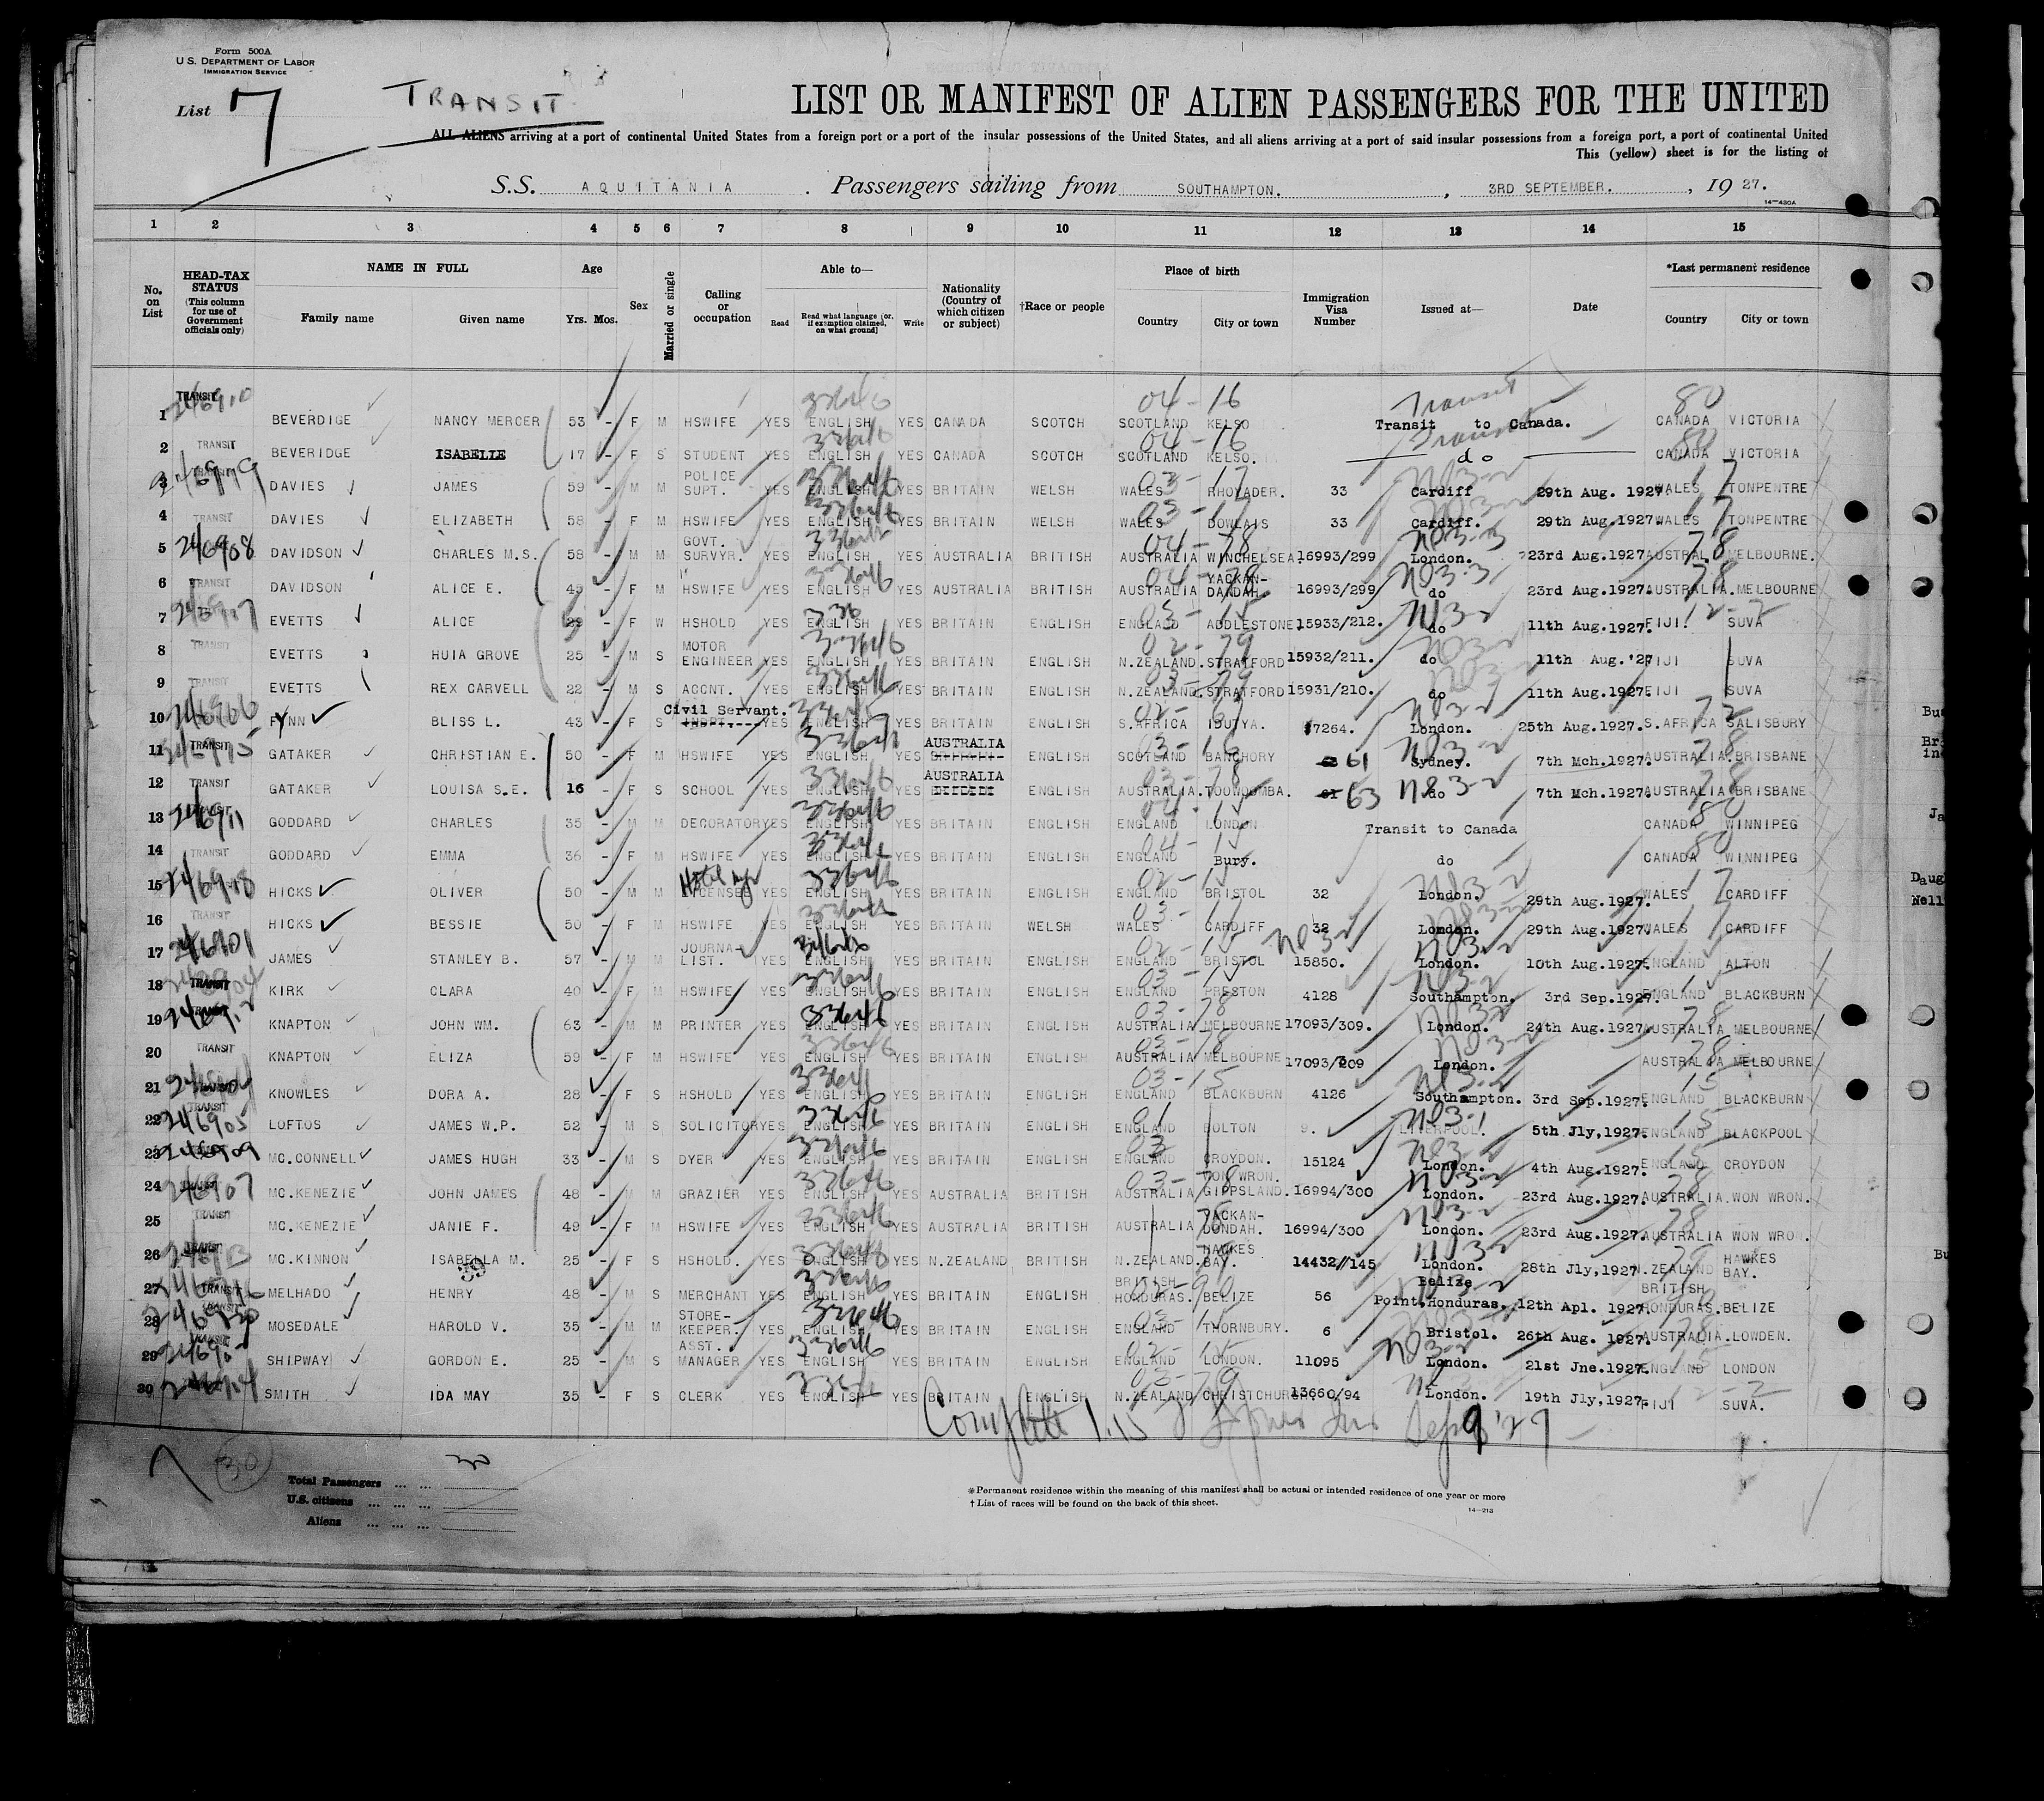 Form 500A
U.S. DEPARTMENT OF LABOR
IMMIGRATION SERVICE
List 7
TRANSIT
LIST OR MANIFEST OF ALIEN PASSENGERS FOR THE UNITED
ALL ALIENS arriving at a port of continental United States from a foreign port or a port of the insular possessions of the United States, and all aliens arriving at a port of said insular possessions from a foreign port, a port of continental United
This (yellow) sheet is for the listing of
S.S. AQUITANIA . Passengers sailing from SOUTHAMPTON. , 3RD SEPTEMBER. , 19 27.
14—430A
1 2 3 4 5 6 7 8 9 10 11 12 13 14 15
No. on List
HEAD-TAX STATUS (This column for use of Government officials only)
NAME IN FULL Family name Given name
Age Yrs. Mos.
Sex
Married or single
Calling or occupation
Able to— Read Read what language [or, if exemption claimed, on what ground] Write
Nationality (Country of which citizen or subject)
†Race or people
Place of birth Country City or town
Immigration Visa Number
Issued at—
Date
*Last permanent residence Country City or town
1 TRANSIT BEVERDIGE NANCY MERCER 53 - F M HSWIFE YES ENGLISH YES CANADA SCOTCH SCOTLAND KELSO Transit to Canada. CANADA VICTORIA
2 TRANSIT BEVERIDGE ISABELLE 17 - F S STUDENT YES ENGLISH YES CANADA SCOTCH SCOTLAND KELSO. do CANADA VICTORIA
3 DAVIES JAMES 59 - M M POLICE SUPT. YES ENGLISH YES BRITAIN WELSH WALES RHOYADER. 33 Cardiff 29th Aug. 1927 WALES TONPENTRE
4 TRANSIT DAVIES ELIZABETH 58 - F M HSWIFE YES ENGLISH YES BRITAIN WELSH WALES DOWLAIS 33 Cardiff. 29th Aug.1927. WALES TONPENTRE
5 246908 DAVIDSON CHARLES M.S. 58 - M M GOVT. SURVYR. YES ENGLISH YES AUSTRALIA BRITISH AUSTRALIA WINCHELSEA. 16993/299 London. 23rd Aug.1927 AUSTRAL. MELBOURNE.
6 TRANSIT DAVIDSON ALICE E. 49 - F M HSWIFE YES ENGLISH YES AUSTRALIA BRITISH AUSTRALIA YACKAN-DANDAH. 16993/299 do 23rd Aug.1927. AUSTRALIA. MELBOURNE
7 EVETTS ALICE - F W HSHOLD YES ENGLISH YES BRITAIN ENGLISH ENGLAND ADDLESTONE. 15933/212. do 11th Aug.1927. FIJI. SUVA
8 TRANSIT EVETTS HUIA GROVE 25 - M S MOTOR ENGINEER YES ENGLISH YES BRITAIN ENGLISH N.ZEALAND. STRATFORD 15932/211. do 11th Aug.'27 FIJI SUVA
9 TRANSIT EVETTS REX CARVELL 22 - M S ACCNT. YES ENGLISH YES BRITAIN ENGLISH N.ZEALAND. STRATFORD 15931/210. do 11th Aug.1927. FIJI SUVA
10 FYNN BLISS L. 43 - F S Civil Servant. YES ENGLISH YES BRITAIN ENGLISH S.AFRICA 7264. London. 25th Aug.1927. S.AFRICA SALISBURY
11 TRANSIT GATAKER CHRISTIAN E. 50 - F M HSWIFE YES ENGLISH YES AUSTRALIA ENGLISH SCOTLAND BANCHORY 61 Sydney. 7th Mch.1927. AUSTRALIA. BRISBANE
12 TRANSIT GATAKER LOUISA S.E. 16 - F S SCHOOL YES ENGLISH YES AUSTRALIA ENGLISH AUSTRALIA. TOOWOOMBA. 63 do 7th Mch.1927. AUSTRALIA BRISBANE
13 246911 GODDARD CHARLES 35 - M M DECORATOR YES ENGLISH YES BRITAIN ENGLISH ENGLAND LONDON Transit to Canada CANADA WINNIPEG
14 TRANSIT GODDARD EMMA 36 - F M HSWIFE YES ENGLISH YES BRITAIN ENGLISH ENGLAND Bury. do CANADA WINNIPEG
15 246918 HICKS OLIVER 50 - M M Hotel mgr LICENSEE YES ENGLISH YES BRITAIN ENGLISH ENGLAND BRISTOL 32 London. 29th Aug.1927. WALES CARDIFF
16 TRANSIT HICKS BESSIE 50 - F M HSWIFE YES ENGLISH YES BRITAIN WELSH WALES CARDIFF 32 London. 29th Aug.1927. WALES CARDIFF
17 246901 JAMES STANLEY B. 57 - M M JOURNA-LIST. YES ENGLISH YES BRITAIN ENGLISH ENGLAND BRISTOL 15850. London. 10th Aug.1927. ENGLAND ALTON
18 TRANSIT KIRK CLARA 40 - F M HSWIFE YES ENGLISH YES BRITAIN ENGLISH ENGLAND PRESTON 4128 Southampton. 3rd Sep.1927. ENGLAND BLACKBURN
19 246912 KNAPTON JOHN WM. 63 - M M PRINTER YES ENGLISH YES BRITAIN ENGLISH AUSTRALIA MELBOURNE 17093/309. London. 24th Aug.1927. AUSTRALIA MELBOURNE
20 TRANSIT KNAPTON ELIZA 59 - F M HSWIFE YES ENGLISH YES BRITAIN ENGLISH AUSTRALIA MELBOURNE 17093/309 London. AUSTRALIA MELBOURNE
21 KNOWLES DORA A. 28 - F S HSHOLD YES ENGLISH YES BRITAIN ENGLISH ENGLAND BLACKBURN 4126 Southampton. 3rd Sep.1927. ENGLAND BLACKBURN
22 246905 LOFTOS JAMES W.P. 52 - M S SOLICITOR YES ENGLISH YES BRITAIN ENGLISH ENGLAND BOLTON 9. LIVERPOOL. 5th Jly,1927. ENGLAND BLACKPOOL
23 246909 MC.CONNELL JAMES HUGH 33 - M S DYER YES ENGLISH YES BRITAIN ENGLISH ENGLAND CROYDON. 15124 London. 4th Aug.1927. ENGLAND CROYDON
24 246907 MC.KENEZIE JOHN JAMES 48 - M M GRAZIER YES ENGLISH YES AUSTRALIA BRITISH AUSTRALIA WON WRON. GIPPSLAND. 16994/300 London. 23rd Aug.1927. AUSTRALIA. WON WRON.
25 TRANSIT MC.KENEZIE JANIE F. 49 - F M HSWIFE YES ENGLISH YES AUSTRALIA BRITISH AUSTRALIA YACKAN-DONDAH. 16994/300 London. 23rd Aug.1927. AUSTRALIA WON WRON.
26 MC.KINNON ISABELLA M. 25 - F S HSHOLD. YES ENGLISH YES N.ZEALAND BRITISH N.ZEALAND. HAWKES BAY. 14432//145 London. 28th Jly,1927 N.ZEALAND HAWKES BAY.
27 TRANSIT MELHADO HENRY 48 - M S MERCHANT YES ENGLISH YES BRITAIN ENGLISH BRITISH HONDURAS. BELIZE 56 Belize Point,Honduras. 12th Apl. 1927. BRITISH HONDURAS. BELIZE
28 MOSEDALE HAROLD V. 35 - M M STORE-KEEPER. YES ENGLISH YES BRITAIN ENGLISH ENGLAND THORNBURY. 6 Bristol. 26th Aug. 1927. AUSTRALIA. LOWDEN.
29 SHIPWAY GORDON E. 25 - M S ASST. MANAGER YES ENGLISH YES BRITAIN ENGLISH ENGLAND LONDON. 11095 London. 21st Jne.1927. ENGLAND LONDON
30 SMITH IDA MAY 35 - F S CLERK YES ENGLISH YES BRITAIN ENGLISH N.ZEALAND CHRISTCHURCH. 13660/94 London. 19th Jly,1927. FIJI SUVA.
Complete 1.15 Sep 9 '27
30
30
Total Passengers ... ...
U.S. citizens ... ... ...
Aliens ... ... ...
*Permanent residence within the meaning of this manifest shall be actual or intended residence of one year or more
† List of races will be found on the back of this sheet.
14—213